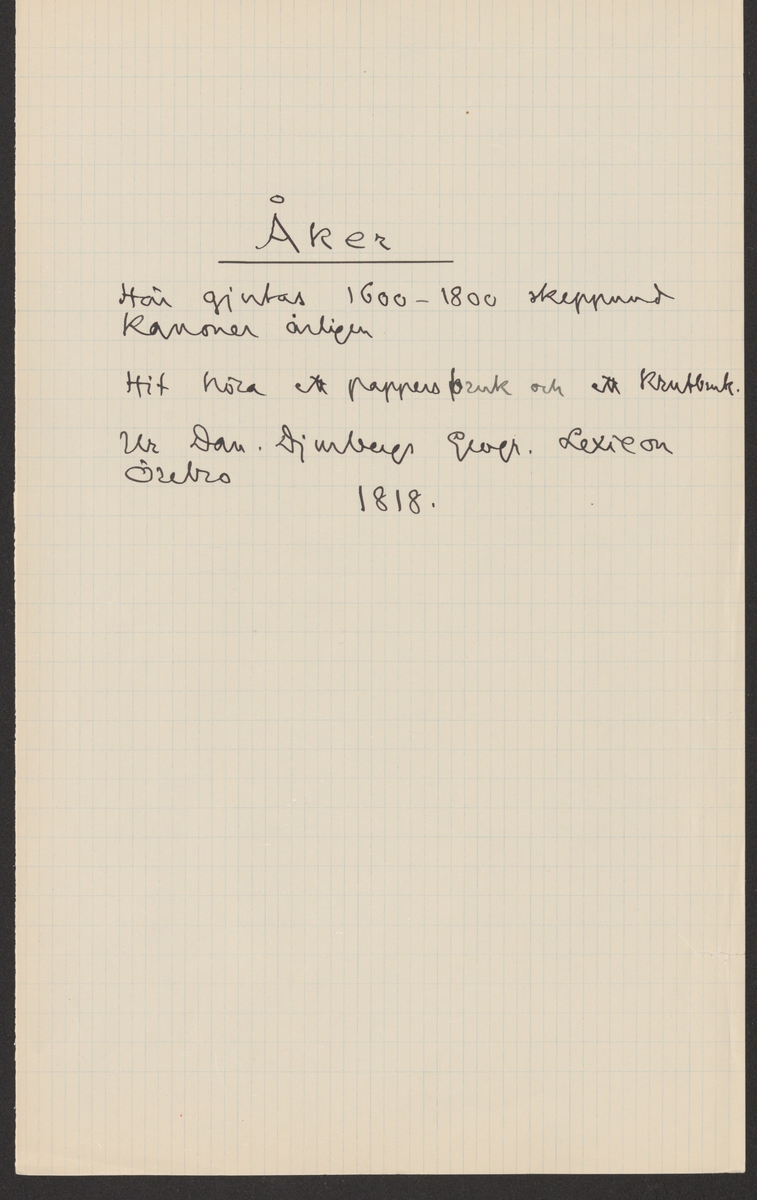 Åker
Här gjutas 1600-1800 skeppund
Kanoner årligen
Hit höra ett pappersbruk och ett Krutbruk.
Ur Dan. Djurbergs Geogr. Lexicon
Örebro
1818.